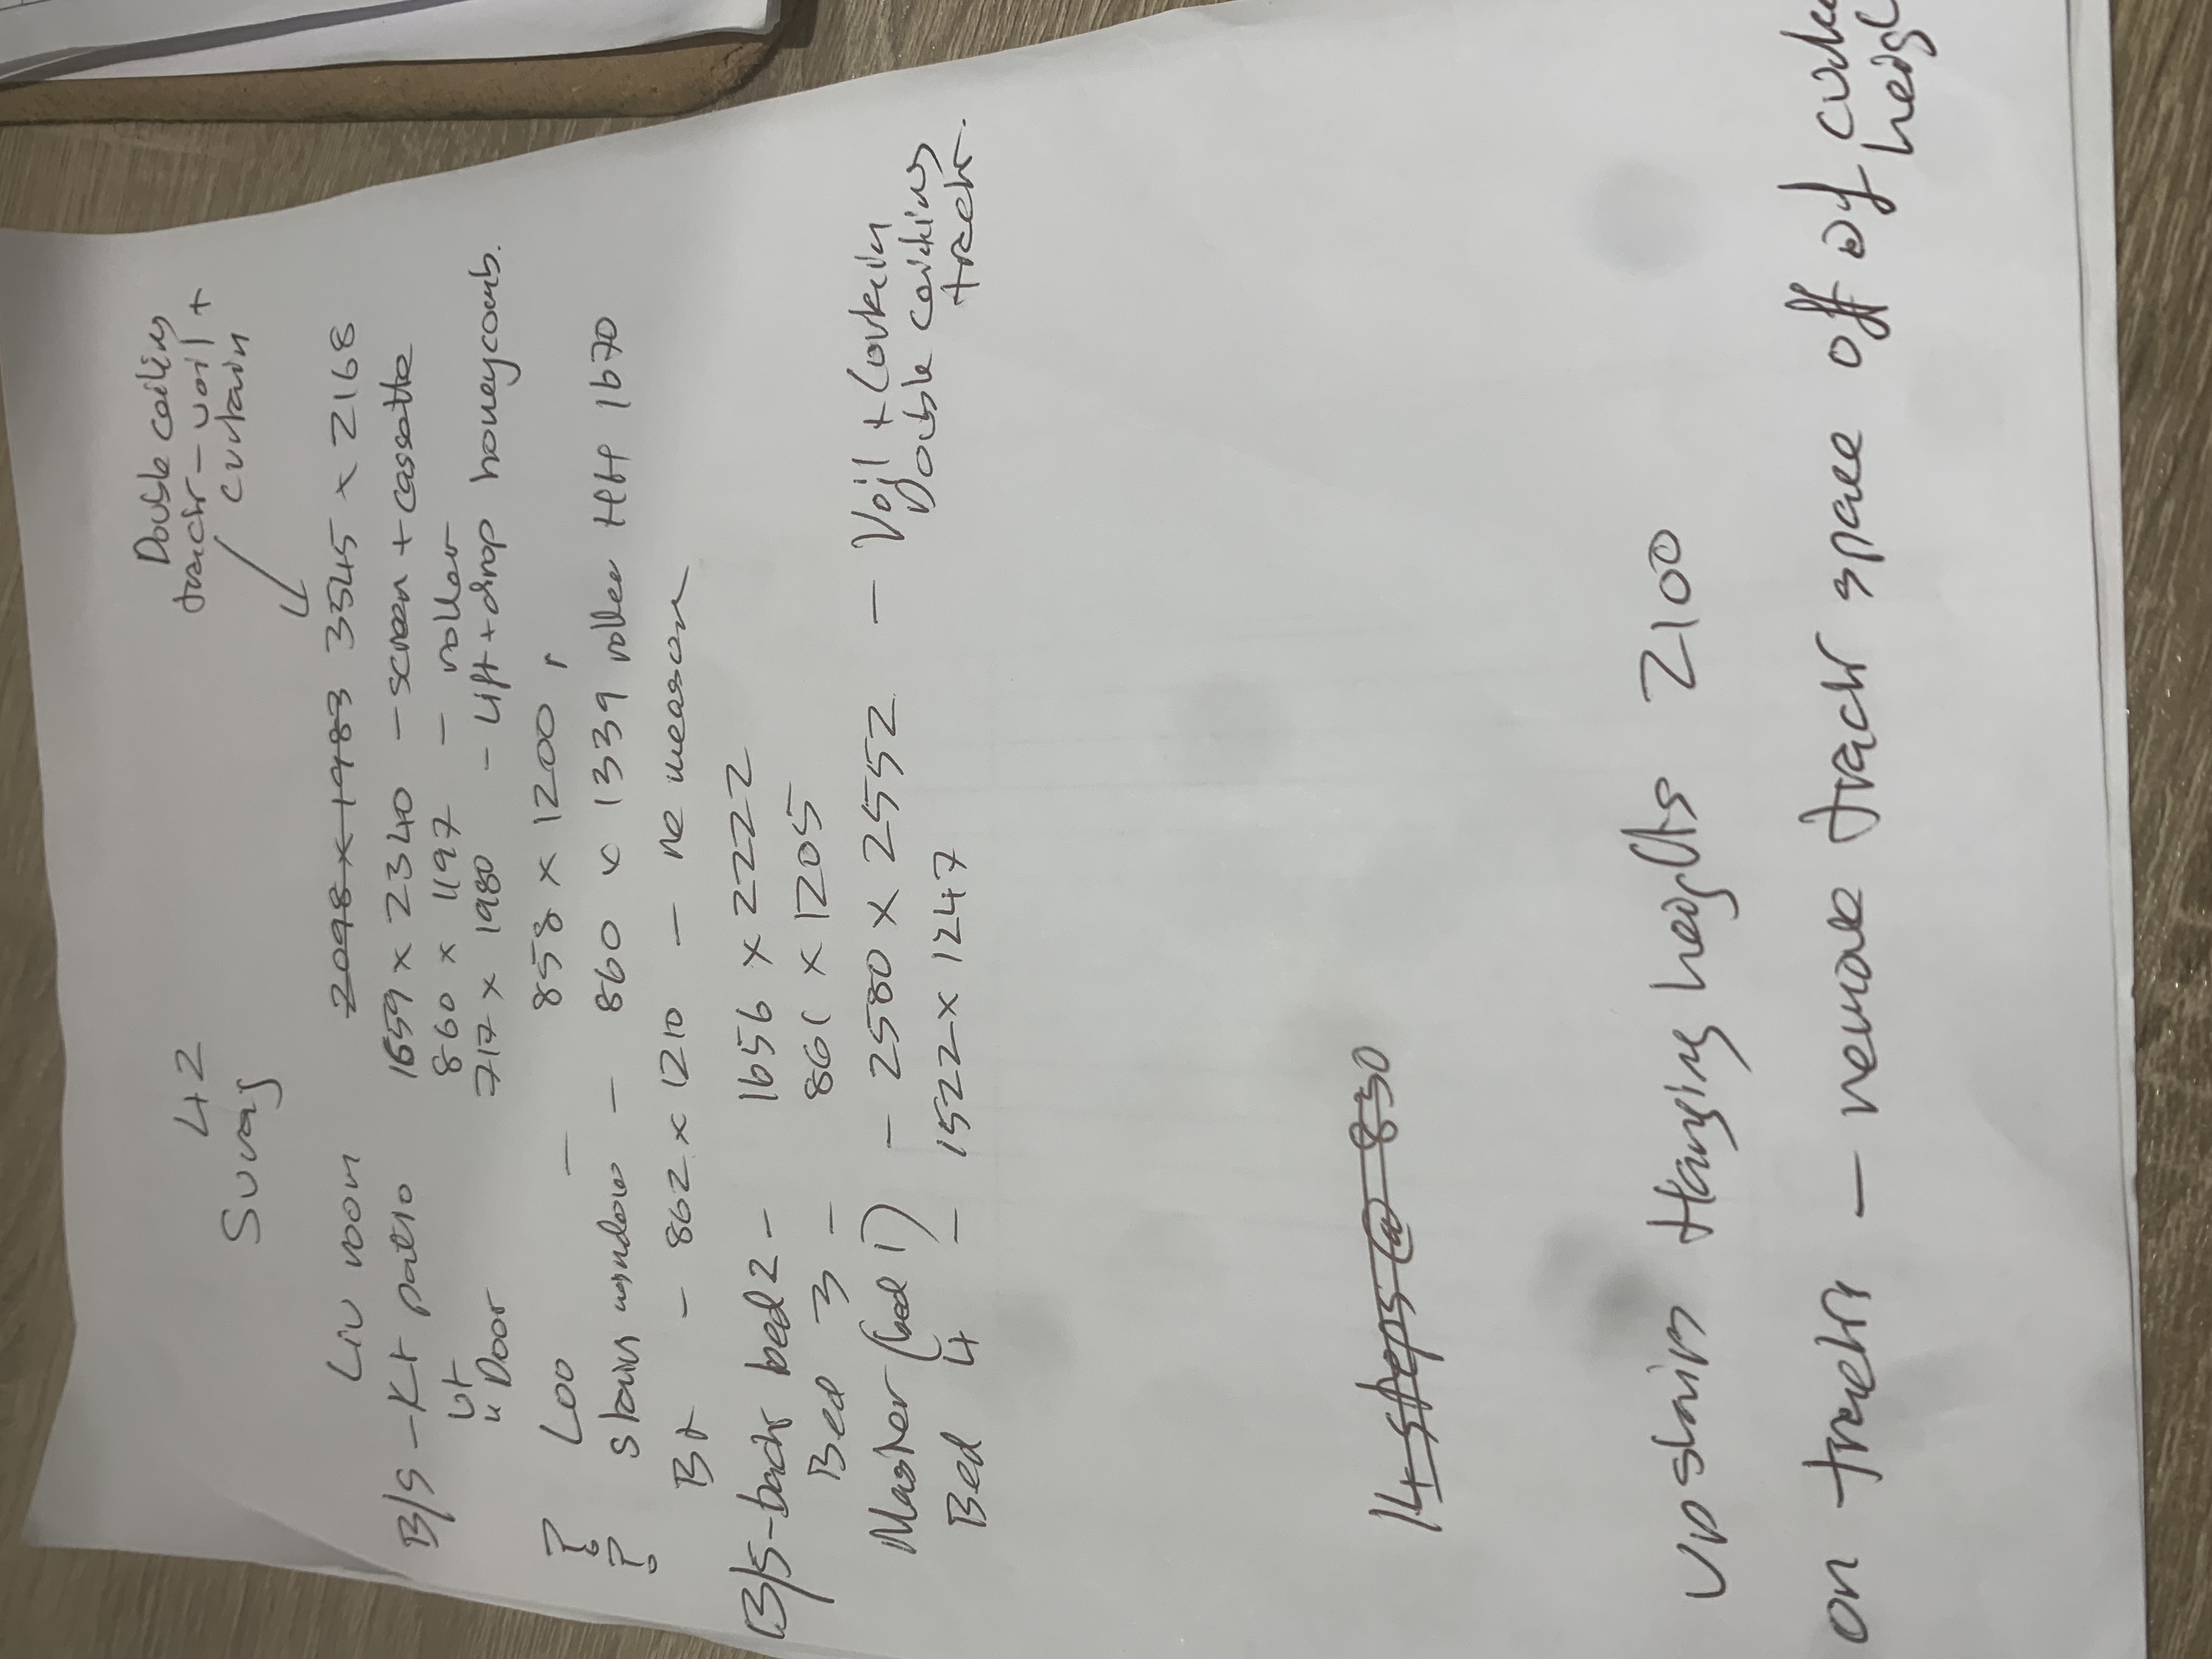 42
Suraj
Double ceiling
track - voil +
curtain
Liv room 2098 x 1983 3545 x 2168
B/S - Kt patio 1659 x 2340 - screen + cassette
Kt 860 x 1197 - roller
" Door 717 x 1980 - Lift + drop honeycomb.
? Loo - 858 x 1200,
? Stairs window - 860 x 1339 roller 1670
Bt - 862 x 1210 - re measure
B/S - back bed 2 - 1656 x 2222
Bed 3 - 861 x 1205
Master (bed 1) - 2580 x 2552 - Voil + Curtain
Double ceiling
track.
Bed 4 - 1522 x 1247
14 steps @ 830
Upstairs Hanging heights 2100
on tracks - remove track space off of